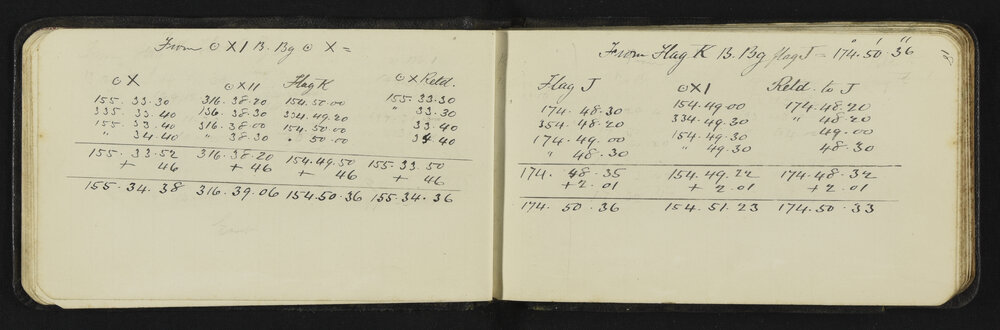 From ⊙ XI B. Bg ⊙ X =
⊙ X ⊙ XII Flag K ⊙ X Reld.
155. 33. 30 316. 38. 20 154. 50. 00 155. 33. 30
335. 33. 40 136. 38. 30 334. 49. 20 " 33. 30
155. 33. 40 316. 38. 00 154. 50. 00 33. 40
" 34. 40 " 38. 30 " 50. 00 34. 40
155. 33. 52 316. 38. 20 154. 49. 50 155. 33. 50
+ 46 + 46 + 46 + 46
155. 34. 38 316. 39. 06 154. 50. 36 155. 34. 36
From Flag K B. Bg flag J = 174° 50' 36"
Flag J ⊙ XI Reld. to J
174. 48. 30 154. 49. 00 174. 48. 20
354. 48. 20 334. 49. 30 " 48. 20
174. 49. 00 154. 49. 30 49. 00
" 48. 30 " 49. 30 48. 30
174. 48. 35 154. 49. 22 174. 48. 32
+2. 01 + 2. 01 +2. 01
174. 50. 36 154. 51. 23 174. 50. 33